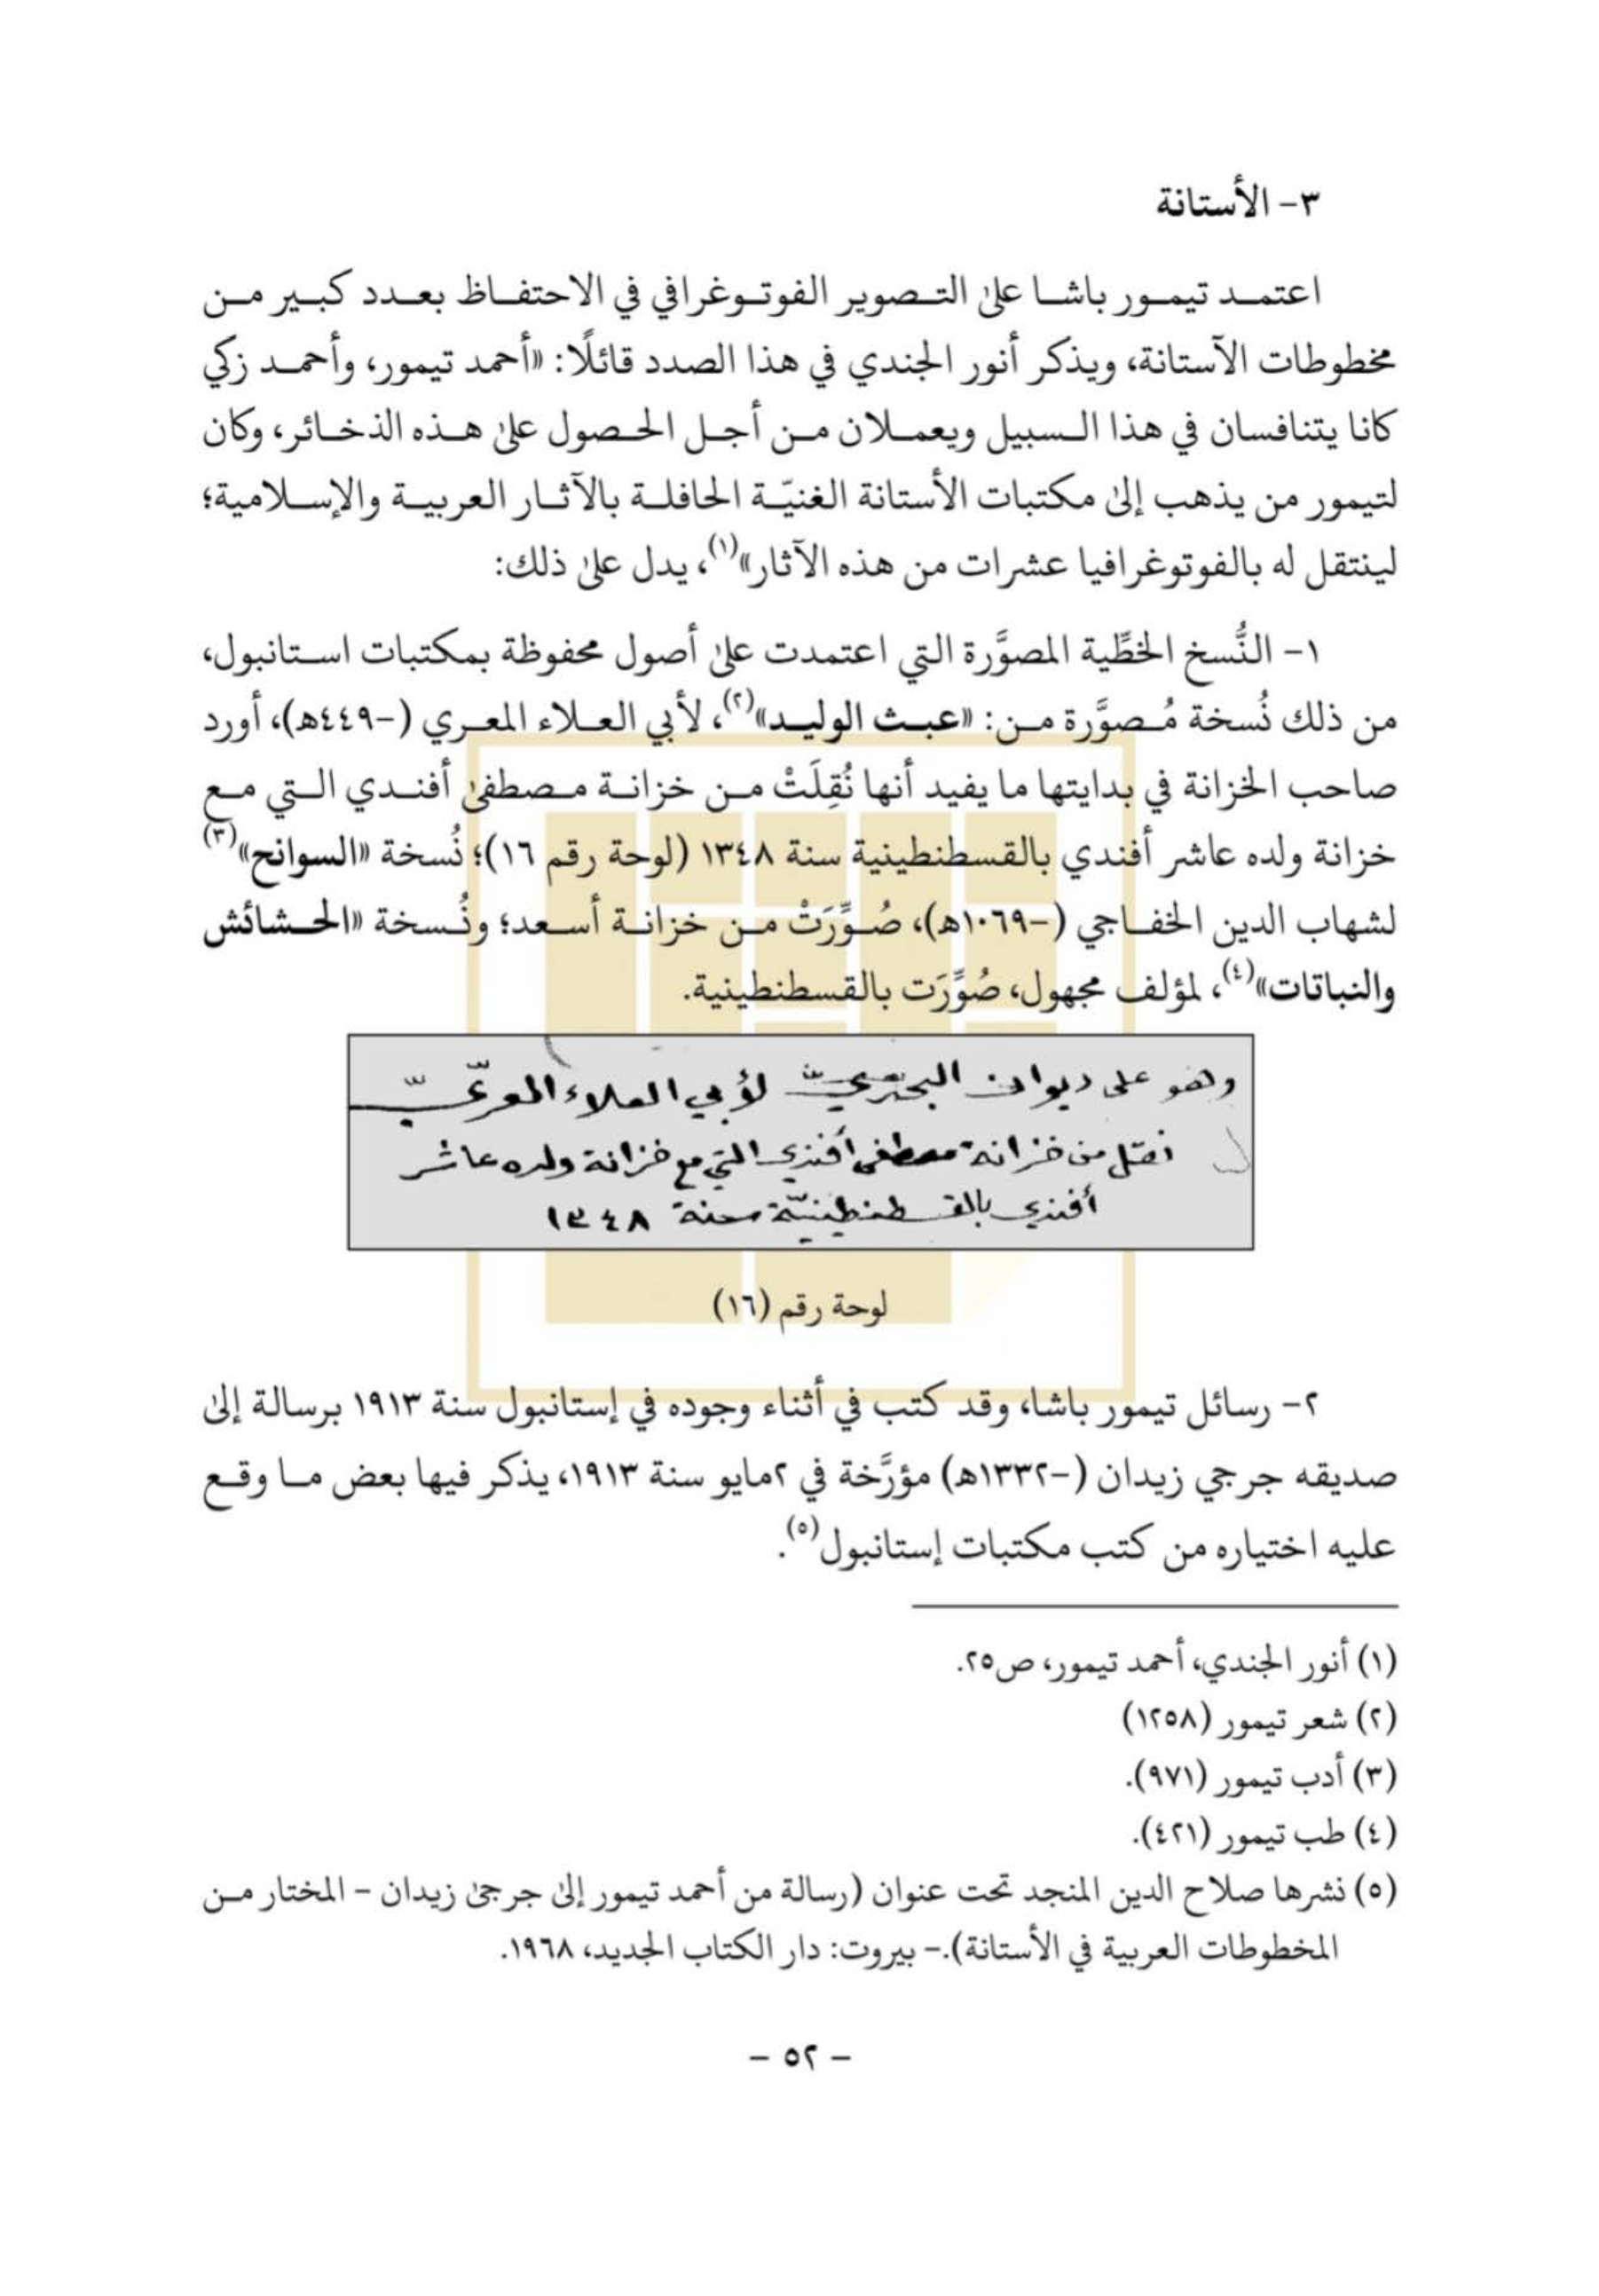 ٣- الأستانة
اعتمد تيمور باشا على التصوير الفوتوغرافي في الاحتفاظ بعدد كبير من
مخطوطات الآستانة، ويذكر أنور الجندي في هذا الصدد قائلًا: «أحمد تيمور، وأحمد زكي
كانا يتنافسان في هذا السبيل ويعملان من أجل الحصول على هذه الذخائر، وكان
لتيمور من يذهب إلى مكتبات الأستانة الغنيّة الحافلة بالآثار العربية والإسلامية؛
لينتقل له بالفوتوغرافيا عشرات من هذه الآثار»(١)، يدل على ذلك:
١- النُّسخ الخطِّية المصوَّرة التي اعتمدت على أصول محفوظة بمكتبات استانبول،
من ذلك نُسخة مُصوَّرة من: «عبث الوليد»(٢)، لأبي العلاء المعري (-٤٤٩هـ)، أورد
صاحب الخزانة في بدايتها ما يفيد أنها نُقِلَتْ من خزانة مصطفى أفندي التي مع
خزانة ولده عاشر أفندي بالقسطنطينية سنة ١٣٤٨ (لوحة رقم ١٦)؛ نُسخة «السوانح»(٣)
لشهاب الدين الخفاجي (-١٠٦٩هـ)، صُوِّرَتْ من خزانة أسعد؛ ونُسخة «الحشائش
والنباتات»(٤)، لمؤلف مجهول، صُوِّرَت بالقسطنطينية.
وهو على ديوان البحتريّ لأبي العلاء المعرّيّ
نقل من خزانة مصطفى أفندي التي مع خزانة ولده عاشر
أفندي بالقسطنطينيّة سنة ١٣٤٨
لوحة رقم (١٦)
٢- رسائل تيمور باشا، وقد كتب في أثناء وجوده في إستانبول سنة ١٩١٣ برسالة إلى
صديقه جرجي زيدان (-١٣٣٢هـ) مؤرَّخة في ٢مايو سنة ١٩١٣، يذكر فيها بعض ما وقع
عليه اختياره من كتب مكتبات إستانبول(٥).
(١) أنور الجندي، أحمد تيمور، ص٢٥.
(٢) شعر تيمور (١٢٥٨)
(٣) أدب تيمور (٩٧١).
(٤) طب تيمور (٤٢١).
(٥) نشرها صلاح الدين المنجد تحت عنوان (رسالة من أحمد تيمور إلى جرجى زيدان - المختار من
المخطوطات العربية في الأستانة).- بيروت: دار الكتاب الجديد، ١٩٦٨.
- ٥٢ -